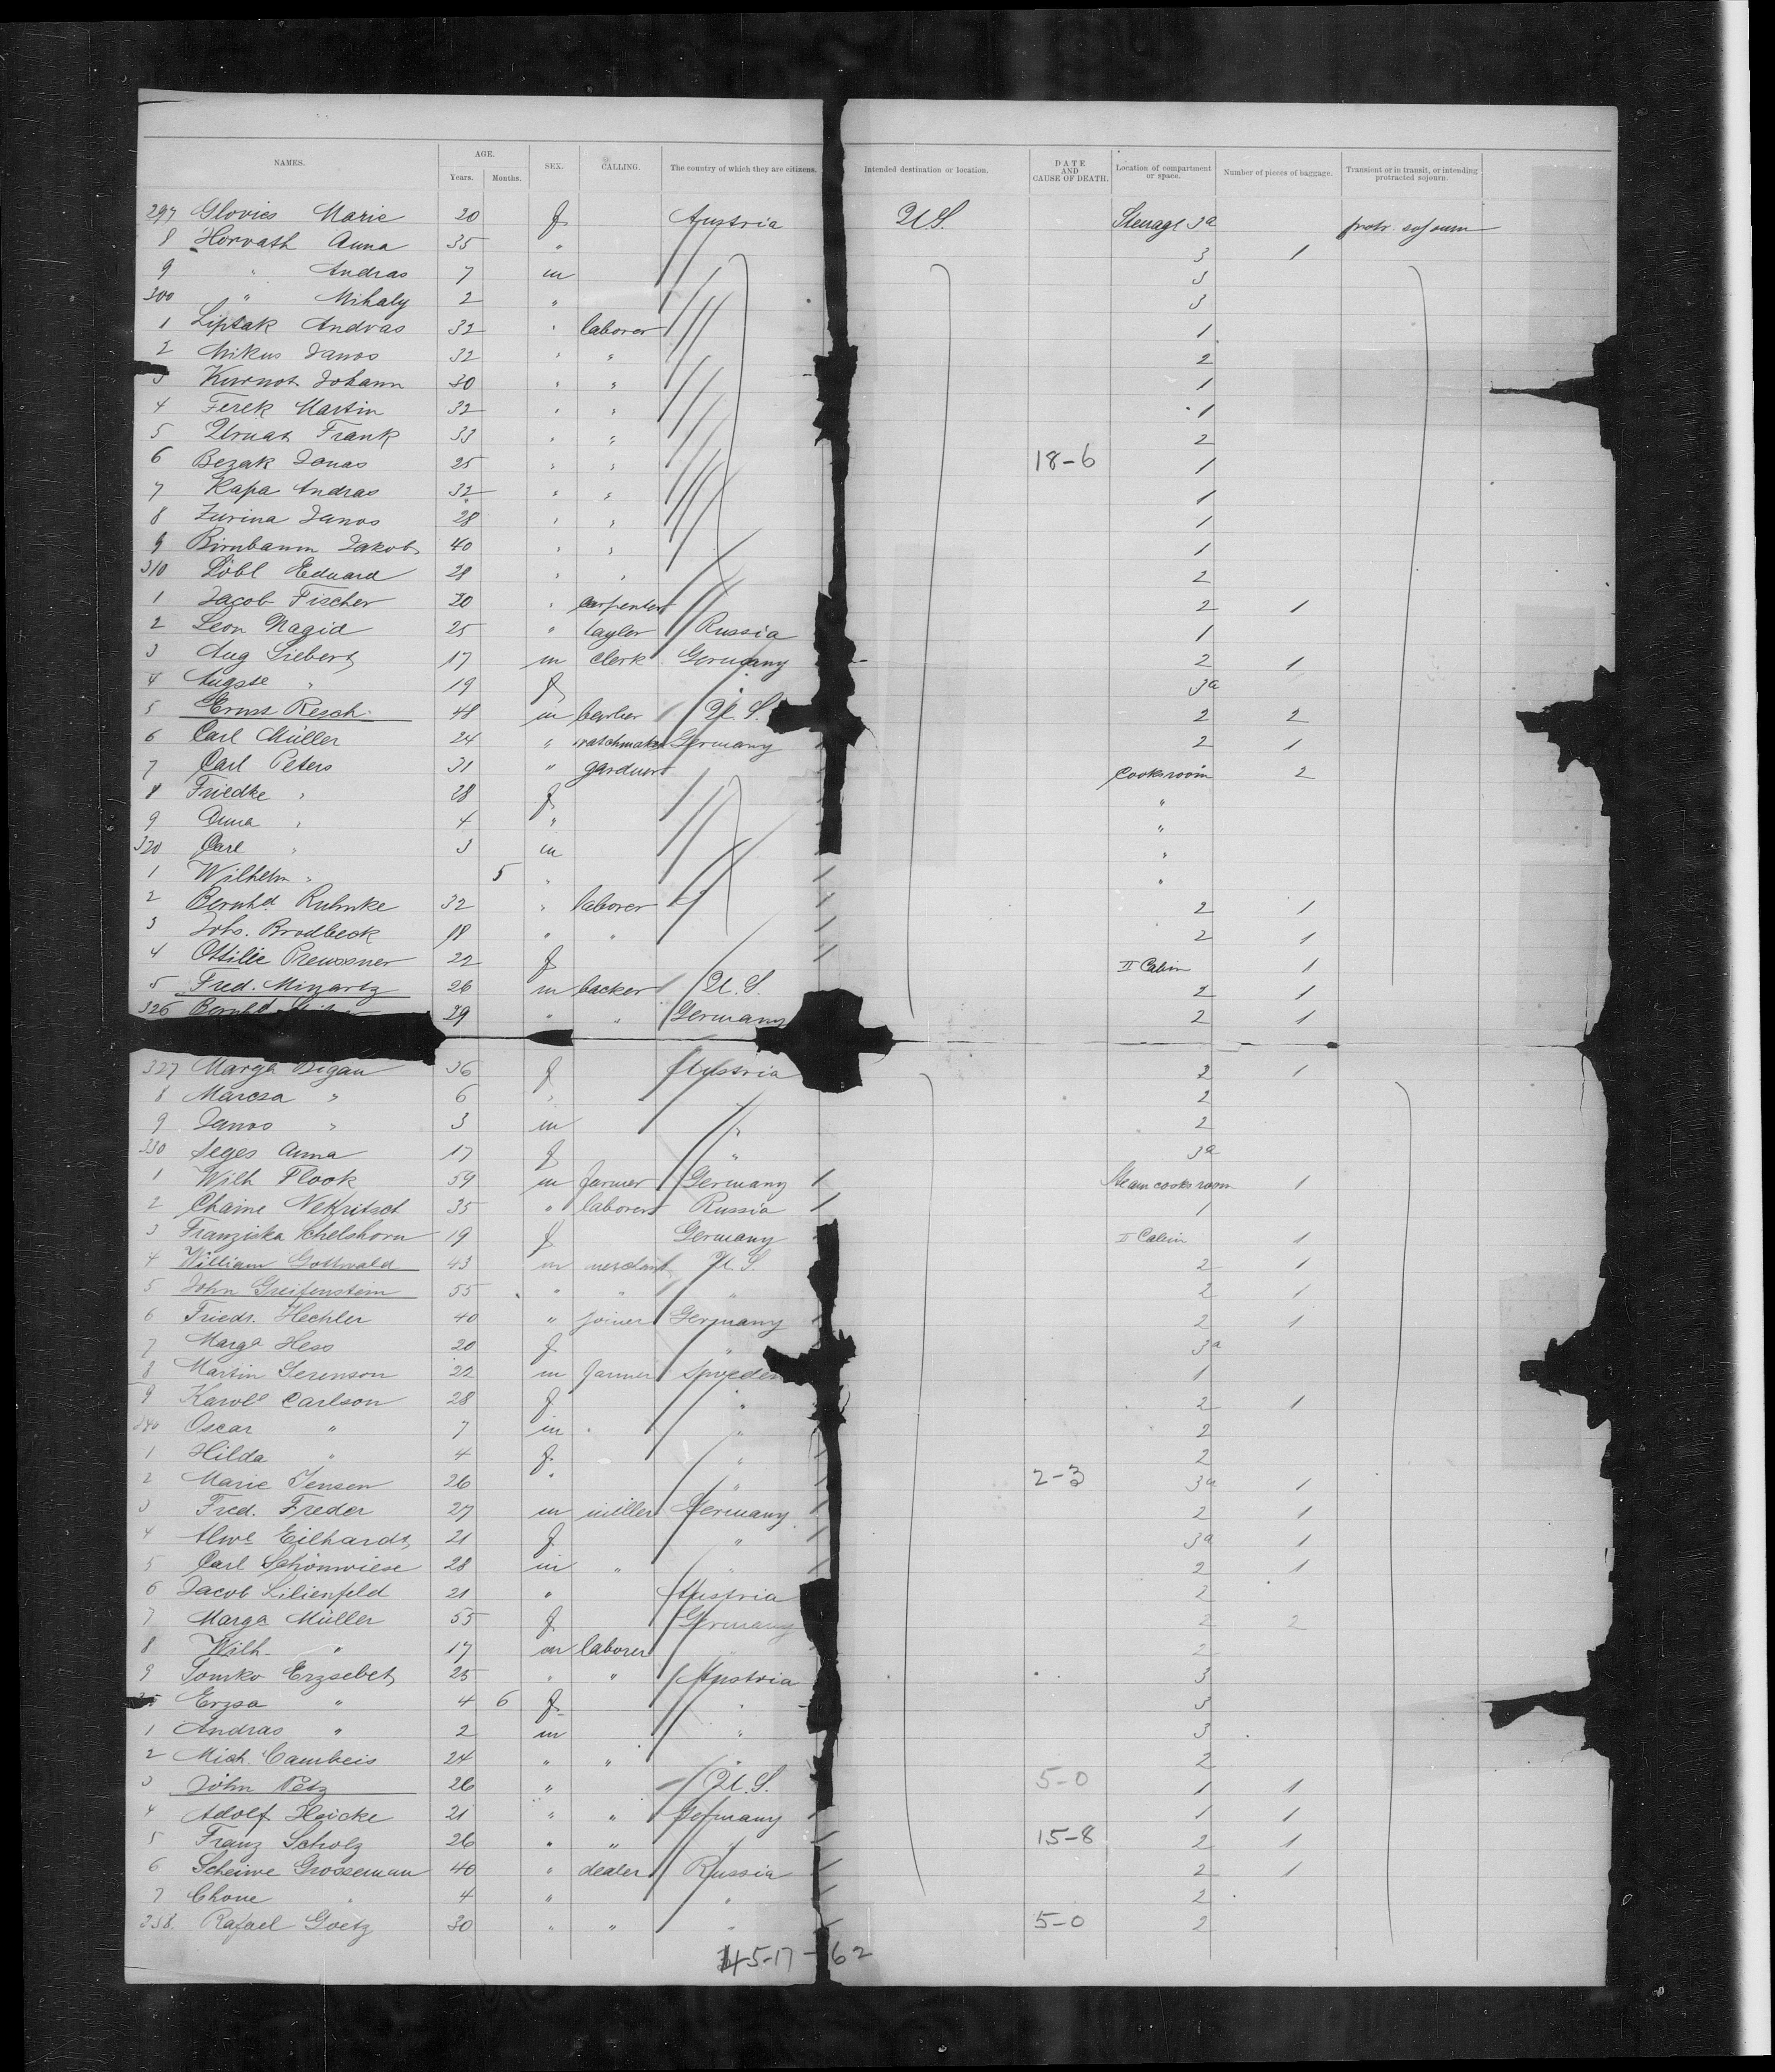 NAMES. AGE. SEX. CALLING. The country of which they are citizens. Intended destination or location. DATE AND CAUSE OF DEATH. Location of compartment or space. Number of pieces of baggage. Transient or in transit, or intending protracted sojourn.
Years. Months.
297 Glovics Marie 20 f Austria U.S. Steerage 3a protr. sojourn
8 Horvath Anna 35 " 3 1
9 " Andras 7 m 3
300 " Mihaly 2 " 3
1 Liptak Andras 32 " laborer 1
2 Mikus Janos 32 " " 2
3 Kurnot Johann 30 " " 1
4 Ferek Martin 32 " " 1
5 Frank 33 " " 2
6 Bezak Jonas 25 " " 18-6 1
7 Kapa Andras 32 " " 1
8 Zurina Janos 28 " " 1
9 Birnbaum Jakob 40 " " 1
310 Löbl Eduard 28 " " 2
1 Jacob Fischer 20 " carpenter 2 1
2 Leon Nagid 25 " taylor Russia 1
3 Aug Siebert 17 m clerk Germany 2 1
4 Augste " 19 f 3a
5 Ernst Resch 48 m barber U.S. 2 2
6 Carl Müller 24 " watchmaker Germany 2 1
7 Carl Peters 31 " garduer Cooksroom 2
8 Friedke " 28 f "
9 Anna " 4 " "
320 Carl " 3 m "
1 Wilhelm " 5 " "
2 Bernhd Ruhnke 32 " laborer 2 1
3 Joh. Brodbeck 18 " " 2 1
4 Ottilie Preussner 22 f II Cabin 1
5 Fred. Minzartz 26 m backer U.S. 2 1
326 Bernhd 29 " " Germany 2 1
327 Marga Digan 36 f Austria 2 1
8 Marcsa " 6 " 2
9 Janos " 3 m " 2
330 Seges Anna 17 f " 3a
1 Wilh Flook 39 m farmer Germany Steam cooks room 1
2 Chaine Nekritsch 35 " laborer Russia 1
3 Franziska Schelshorn 19 f Germany II Cabin 1
4 William Gottwald 43 m merchant U.S. 2 1
5 John Greifenstein 55 " " " 2 1
6 Friedr. Hechler 40 " joiner Germany 2 1
7 Marga Hess 20 f " 3a
8 Martin Serenson 22 m farmer Sweden 1
9 Karole Carlson 28 f " 2 1
340 Oscar " 7 m " 2
1 Hilda " 4 f " 2
2 Marie Jensen 26 " " 2-3 3a 1
3 Fred. Freder 27 m miller Germany 2 1
4 Alwe Eilhardt 21 f " 3a 1
5 Carl Schönwiese 28 m " " 2 1
6 Jacob Lilienfeld 21 " Austria 2
7 Marga Müller 55 f Germany 2 2
8 Wilh " 17 m laborer " 2
9 Tomko Erzsebet 25 " " Austria 3
Erzsa " 4 6 f " 3
1 Andras " 2 m " 3
2 Mich. Cambeis 24 " " " 2
3 John Petz 26 " U.S. 5-0 1 1
4 Adolf Heicke 21 " " Germany 1 1
5 Franz Scholz 26 " " " 15-8 2 1
6 Scheiwe Grosseman 40 " dealer Russia 2 1
7 Chone " 4 " " 2
358. Rafael Goetz 30 " " " 5-0 2
45-17-62